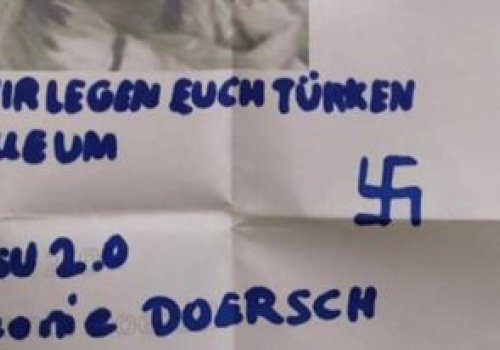 IR LEGEN EUCH TÜRKEN
LLE UM
SU 2.0
onie DOERSCH